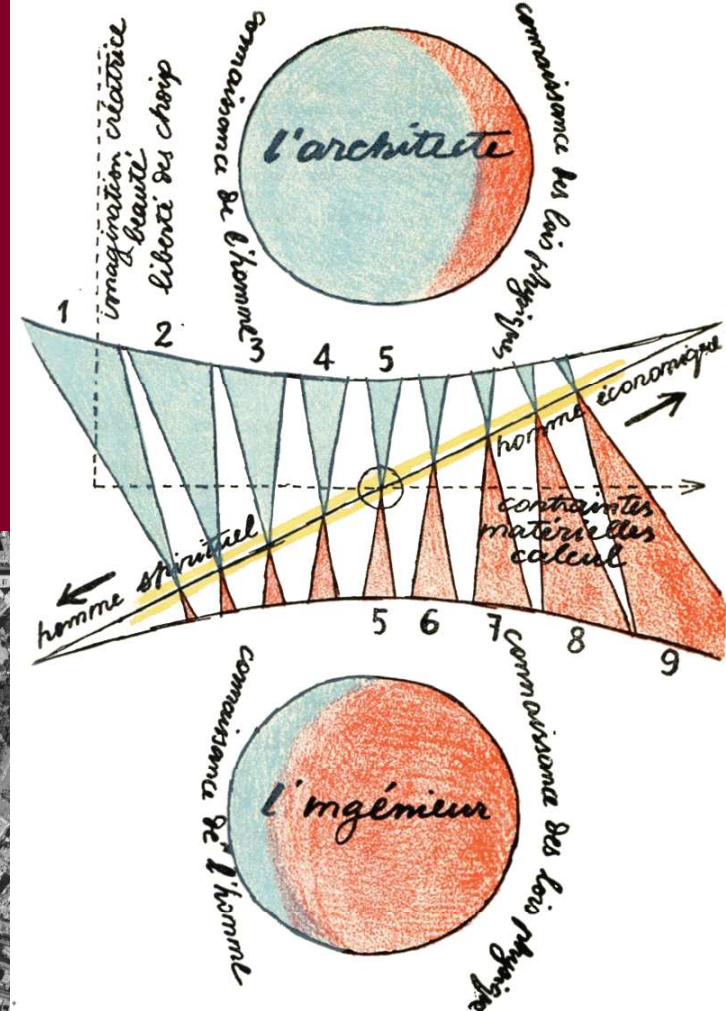 imagination créatrice
beauté
liberté des choix
connaissance de l'homme
l'architecte
connaissance des lois physiques
1
2
3
4
5
homme économique
contraintes
matérielles
calcul
homme spirituel
5
6
7
8
9
connaissance de l'homme
l'ingénieur
connaissance des lois physique